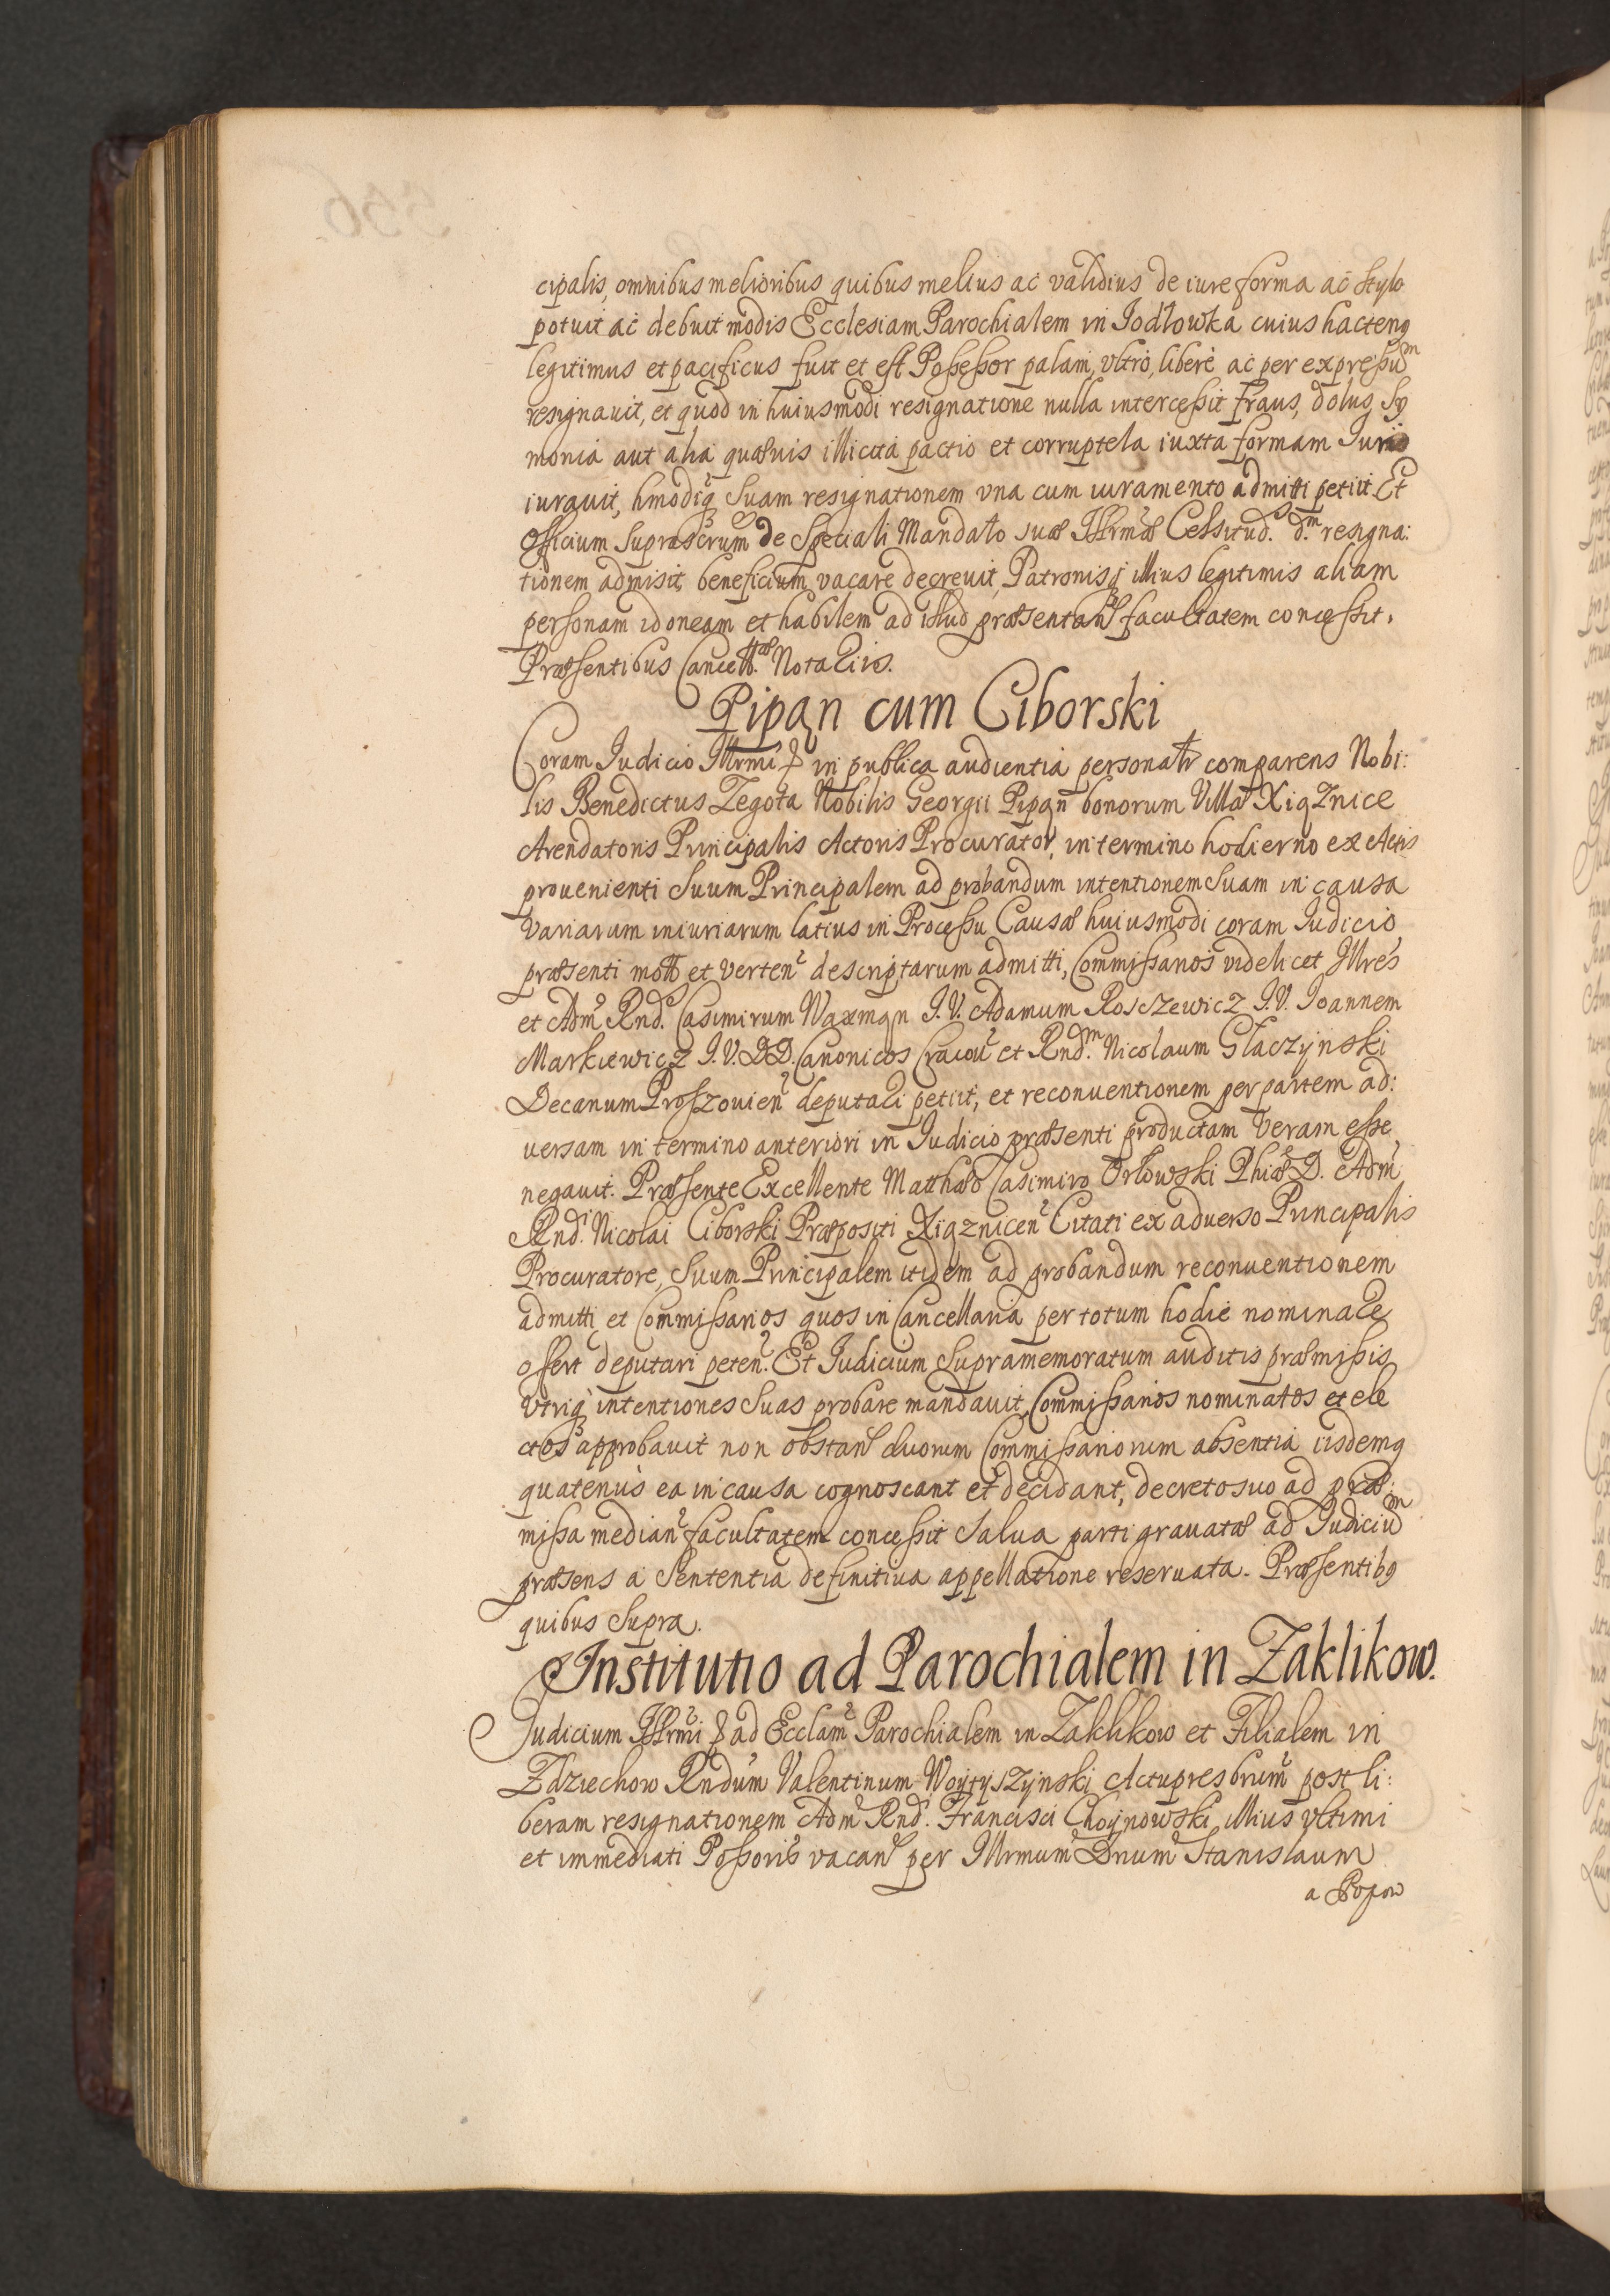 cipalis, omnibus melioribus quibus melius ac validius de iure forma ac stylo
potuit ac debuit modis Ecclesiam Parochialem in Jodłowka cuius hacteng
legitimus et pacificus fuit et est Possessor palam, vltro, libere ac per expressum
resignauit, et quod in huiusmodi resignatione nulla intercessit fraus, dolus, Sy
monia aut alia quæuis illicita pactio et corruptela iuxta formam Juris
iurauit, hmodiq Suam resignationem vna cum iuramento admitti petiit. Et
Officium Suprascrum de Speciali Mandato suæ Illrmæ Celsitud. d.m resigna:
tionem admisit, beneficium vacare decreuit, Patronisq illius legitimis aliam
personam idoneam et habilem ad illud præsentan facultatem concessit.
Præsentibus Cancell. Notariis.
Pipan cum Ciborski
Coram Judicio Illrmi & in publica audientia personalr comparens Nobi:
lis Benedictus Zegota Nobilis Georgii Pipan bonorum Villæ Xiąznice
Arendatoris Principalis Actoris Procurator, in termino hodierno ex Actis
prouenienti Suum Principalem ad probandum intentionem Suam in causa
variarum iniuriarum latius in Processu Causæ huiusmodi coram Judicio
præsenti mott et verten descriptarum admitti, Commissarios videlicet Illres
et Adm Rnd. Casimirum Waxman J.V. Adamum Rosczewicz J.V. Joannem
Markiewicz J.V.DD. Canonicos Cracou et Rnd.m Nicolaum Głaczynski
Decanum Proszouien deputari petiit, et reconuentionem per partem ad:
uersam in termino anteriori in Judicio præsenti productam veram esse
negauit. Præsente Excellente Matthæo Casimiro Orłowski Phiæ D. Adm
Rnd. Nicolai Ciborski Præpositi Xiąznicen Citati ex aduerso Principalis
Procuratore, Suum Principalem itidem ad probandum reconuentionem
admitti et Commissarios quos in Cancellaria per totum hodie nominare
offert deputari peten. Et Judicium Supramemoratum auditis præmissis
vtriq intentiones Suas probare mandauit, Commissarios nominatos et ele
ctos approbauit non obstan duorum Commissariorum absentia iisdemq
quatenus ea in causa cognoscant et decidant, decreto suo ad præ:
missa median facultatem concessit Salua parti grauatæ ad Judicium
præsens a Sententia definitiua appellatione reseruata. Præsentibq
quibus Supra.
Institutio ad Parochialem in Zaklikow.
Judicium Illrmi & ad Ecclam Parochialem in Zaklikow et Filialem in
Zdziechow Rndum Valentinum Woytyszynski Actupresbrum post li:
beram resignationem Adm Rnd. Francisci Choynowski illius vltimi
et immediati Possoris vacan per Illrmum Dnum Stanislaum
a Popow